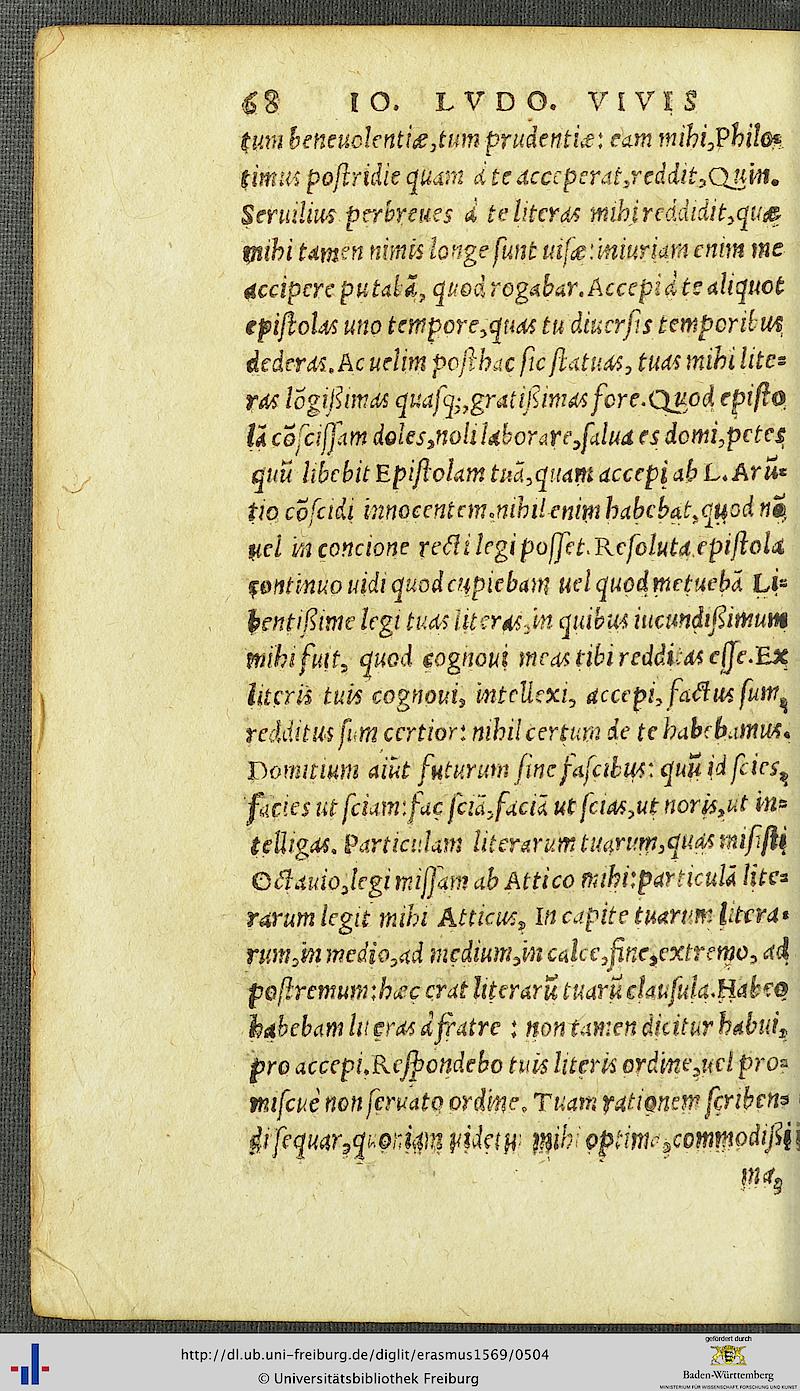 68 IO. LVDO. VIVIS
tum beneuolentiæ, tum prudentiæ: eam mihi, Philo-
timus postridie quam à te acceperat, reddit, Quin.
Seruilius perbreues à te literas mihi reddidit, quæ
mihi tamen nimis longe sunt uisæ: iniuriam enim me
accipere putabã, quod rogabar. Accepi à te aliquot
epistolas uno tempore, quas tu diuersis temporibus
dederas. Ac uelim posthac sic statuas, tuas mihi lite=
ras lõgißimas quasq;, gratißimas fore. Quod episto
lã cõscissam doles, noli laborare, salua es domi, petes
quũ libebit Epistolam tuã, quam accepi ab L. Arũ=
tio cõscidi innocentem. nihil enim habebat, quod nõ
uel in concione recti legi posset. Resoluta epistola
continuo uidi quod cupiebam uel quod metuebã Li=
bentißime legi tuas literas, in quibus iucundißimum
mihi fuit, quod cognoui meas tibi redditas esse. Ex
literis tuis cognoui, intellexi, accepi, factus sum,
redditus sum certior: nihil certum de te habebamus.
Domitium aiũt futurum sine fascibus: quũ id scies,
facies ut sciam: fac sciã, faciã ut scias, ut noris, ut in=
telligas. Particulam literarum tuarum, quas misisti
Octauio, legi missam ab Attico mihi: particulã lite=
rarum legit mihi Atticus, In capite tuarum litera-
rum, in medio, ad medium, in calce, fine, extremo, ad
postremum: hæc erat literarũ tuarũ clausula. Habeo
habebam literas à fratre : non tamen dicitur habui,
pro accepi. Respondebo tuis literis ordine, uel pro=
miscuè non seruato ordine. Tuam rationem scriben=
di sequar, quoniam uidetur mihi optima, commodißi
ma,
http://dl.ub.uni-freiburg.de/diglit/erasmus1569/0504
© Universitätsbibliothek Freiburg
gefördert durch
Baden-Württemberg
MINISTERIUM FÜR WISSENSCHAFT, FORSCHUNG UND KUNST